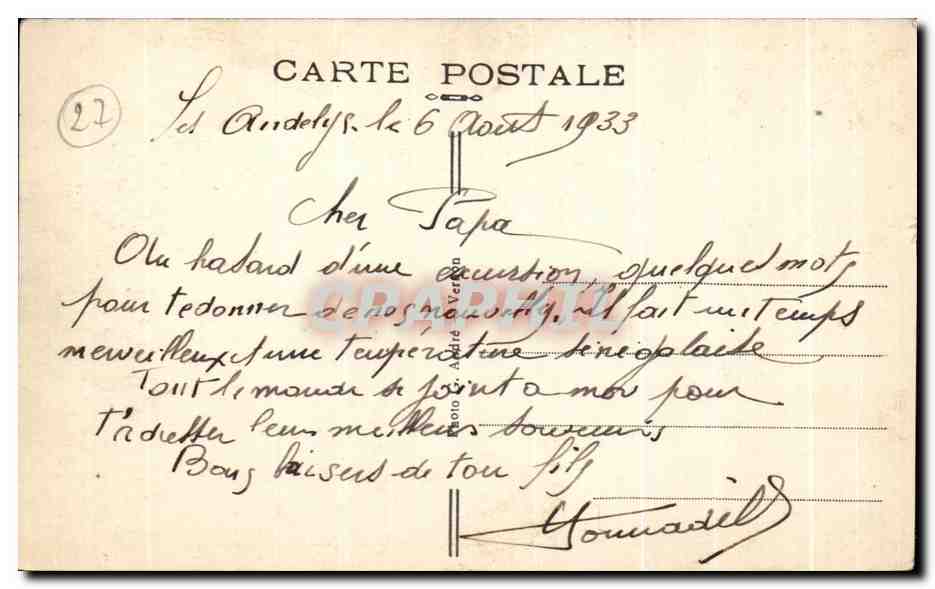 CARTE POSTALE
27
Les Andelys. le 6 Août 1933
Cher Papa
Au hasard d'une excursion, quelques mots
pour te donner de nos nouvelles, il fait un temps
merveilleux et une température sénégalaise
Tout le monde se joint a moi pour
t'adresser leurs meilleurs souvenirs
Bons baisers de ton fils
Photo André Vernon
CRAPHI